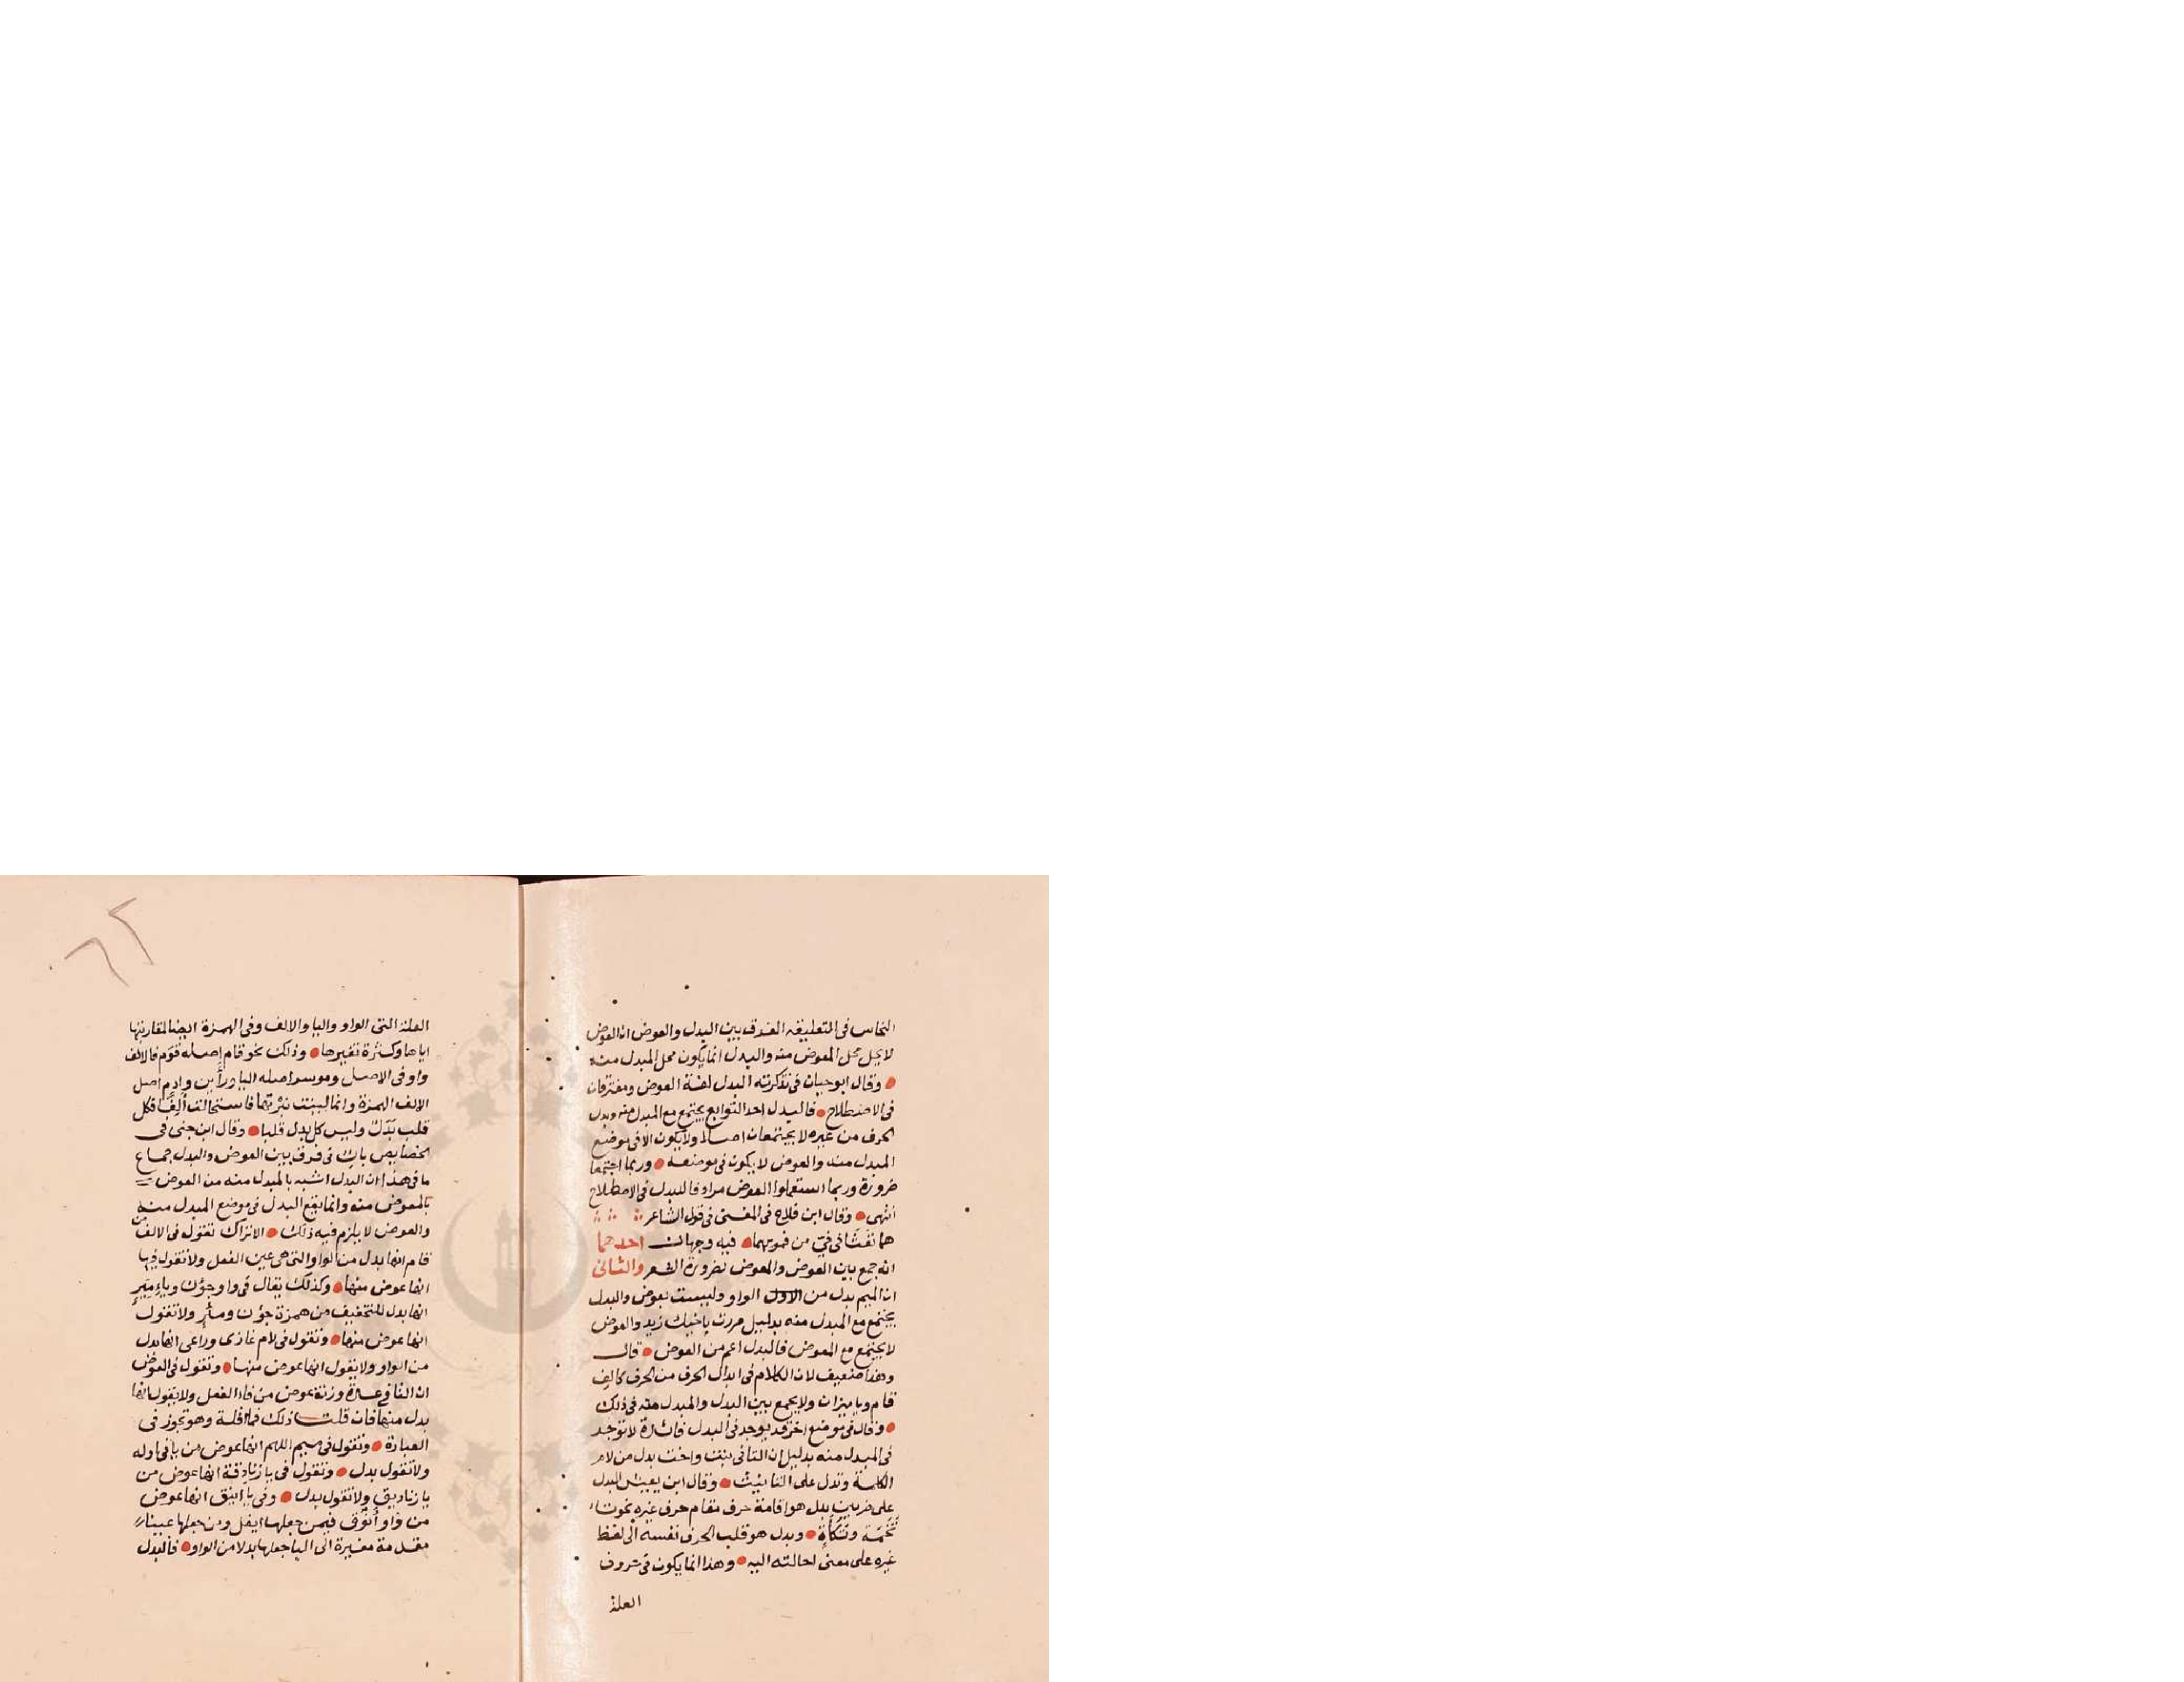 النحاس في التعليقه الفرق بين البدل والعوض ان العوض
لا يحل محل المعوض منه والبدل انما يكون محل المبدل منه
وقال ابو حيان في تذكرته البدل لغة العوض ومفترقان
في الاصطلاح فالبدل احد التوابع يجتمع مع المبدل منه وبدل
الحرف من غيره لا يجتمعان اصلا ولا يكون الا في موضع
المبدل منه والعوض لا يكون في موضعه وربما اجتمعا
ضرورة وربما استعملوا العوض مرادفا للبدل في الاصطلاح
انتهى وقال ابن فلاح في المغني في قول الشاعر
هما نفثا في فيّ من فمويهما فيه وجهان احدهما
انه جمع بين العوض والمعوض لضرورة الشعر والثاني
ان الميم بدل من الاول الواو وليست بعوض والبدل
يجتمع مع المبدل منه بدليل مررت باخيك زيد والعوض
لا يجتمع مع المعوض فالبدل اعم من العوض قال
وهذا ضعيف لان الكلام في ابدال الحرف من الحرف كالف
قام ويا ميزان ولا يجمع بين البدل والمبدل منه في ذلك
وقال في موضع اخر قد يوجد في البدل فائدة لا توجد
في المبدل منه بدليل ان التا في بنت واخت بدل من لام
الكلمة وتدل على التانيث وقال ابن يعيش البدل
على ضربين بدل هو اقامة حرف مقام حرف غيره نحو تاء
تُخَمَة وتُكَأَة وبدل هو قلب الحرف نفسه الى لفظ
غيره على معنى احالته اليه وهذا انما يكون في حروف
العلة
٦٢
العلة التي الواو واليا والالف وفي الهمزة ايضا لمقاربتها
اياها وكثرة تغيرها وذلك نحو قام اصله قوم فالالف
واو في الاصل وموسر اصله اليا وراس وادم اصل
الالف الهمزة وانما لينت نبرتها فاستحالت الفا فكل
قلب بدل وليس كل بدل قلبا وقال ابن جني في
الخصايص باب في فرق بين العوض والبدل جماع
ما في هذا ان البدل اشبه بالمبدل منه من العوض
بالمعوض منه وانما يقع البدل في موضع المبدل منه
والعوض لا يلزم فيه ذلك الا تراك تقول في الالف من
قام انها بدل من الواو التي هي عين الفعل ولا تقول فيها
انها عوض منها وكذلك يقال في واو جون وياء مير
انها بدل للتخفيف من همزة جؤن ومئر ولا تقول
انها عوض منها وتقول في لام غازي وراعي انها بدل
من الواو ولا يقول انها عوض منها وتقول في العوض
ان التا في عدة وزنة عوض من فاء الفعل ولا يقول انها
بدل منها فان قلت ذلك فما اقله وهو تجوز في
العبارة وتقول في ميم اللهم انها عوض من يا في اوله
ولا تقول بدل وتقول في يا زنادقة انها عوض من
يا زناديق ولا تقول بدل وفي يا اينق انها عوض
من واو أنوق فيمن جعلها ايفل ومن جعلها عينا
مقدمة مغيرة الى اليا جعلها بدلا من الواو فالبدل